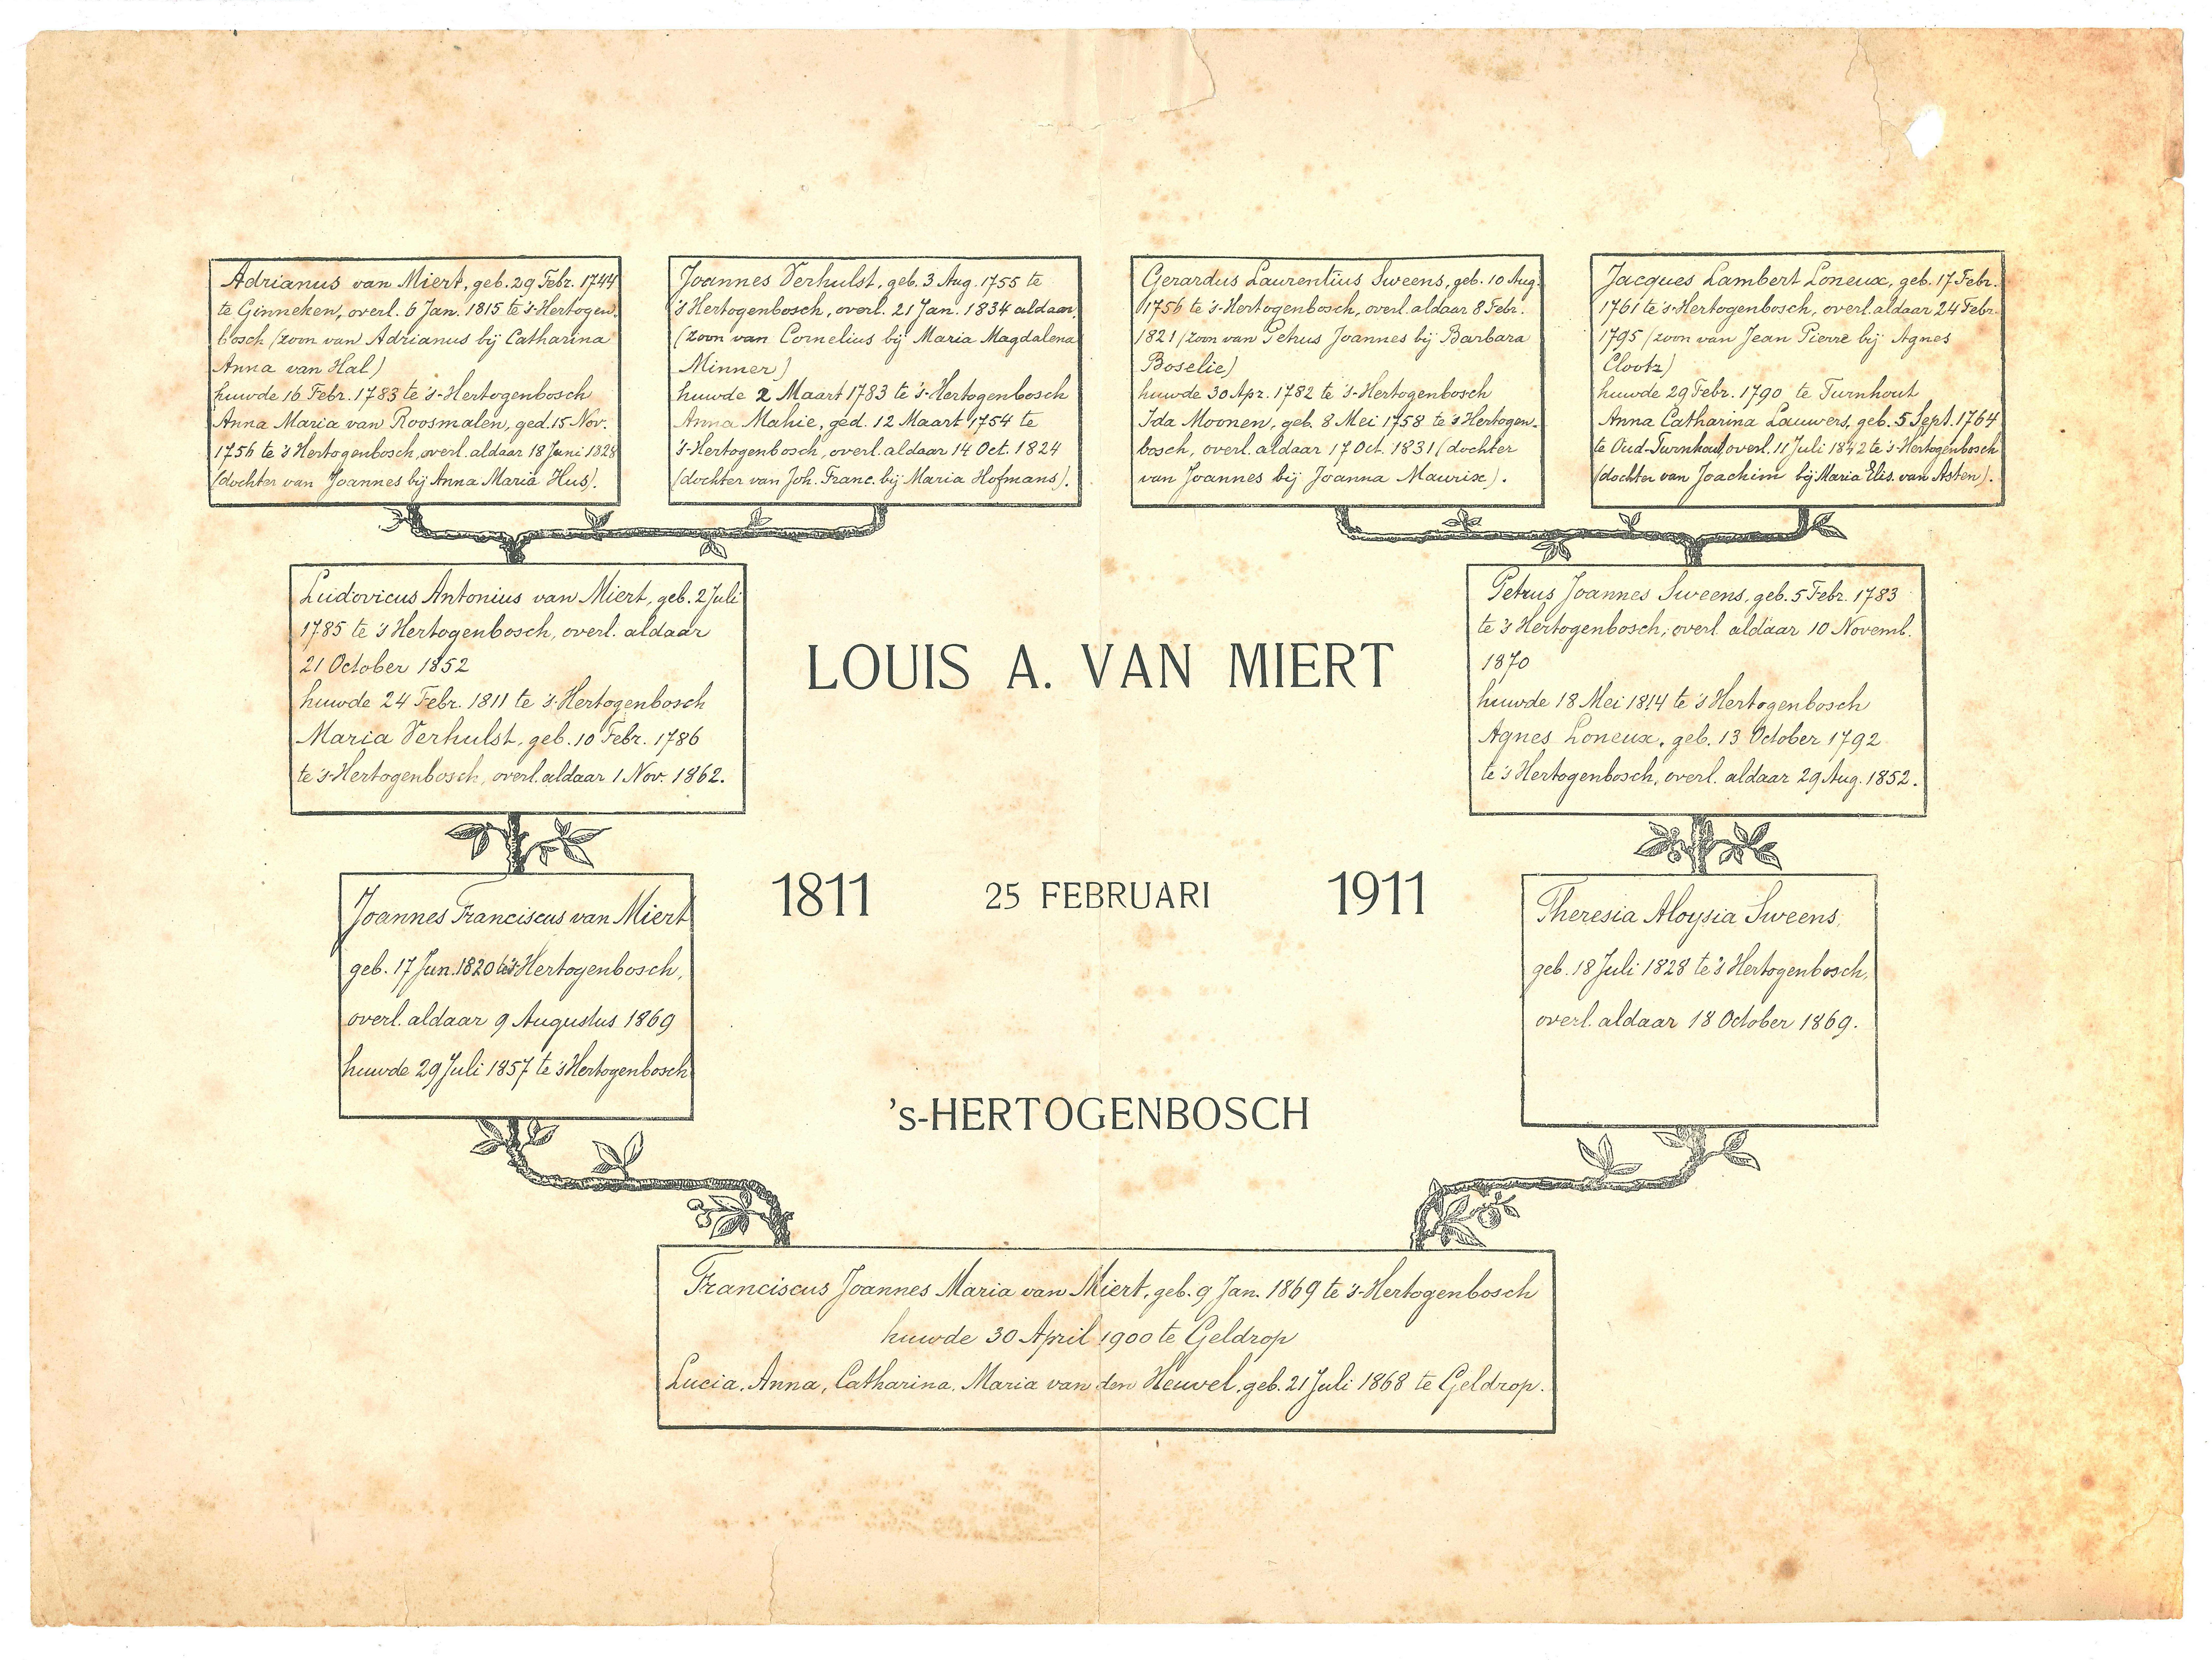 Adrianus van Miert, geb. 29 Febr. 1744
te Ginneken, overl. 6 Jan. 1815 te 's-Hertogen-
bosch (zoon van Adrianus bij Catharina
Anna van Hal)
huwde 16 Febr. 1783 te 's-Hertogenbosch
Anna Maria van Roosmalen, ged. 15 Nov.
1756 te 's Hertogenbosch, overl. aldaar 18 Juni 1828
(dochter van Joannes bij Anna Maria Hus).
Joannes Verhulst, geb. 3 Aug. 1755 te
's Hertogenbosch, overl. 21 Jan. 1834 aldaar.
(zoon van Cornelius bij Maria Magdalena
Minner)
huwde 2 Maart 1783 te 's-Hertogenbosch
Anna Mahie, ged. 12 Maart 1754 te
's-Hertogenbosch, overl. aldaar 14 Oct. 1824
(dochter van Joh. Franc. bij Maria Hofmans).
Gerardus Laurentius Sweens, geb. 10 Aug.
1756 te 's-Hertogenbosch, overl. aldaar 8 Febr.
1821 (zoon van Petrus Joannes bij Barbara
Boselie)
huwde 30 Apr. 1782 te 's-Hertogenbosch
Ida Moonen, geb. 8 Mei 1758 te 's Hertogen-
bosch, overl. aldaar 17 Oct. 1831 (dochter
van Joannes bij Joanna Maurix).
Jacques Lambert Loneux, geb. 17 Febr.
1761 te 's-Hertogenbosch, overl. aldaar 24 Febr.
1795 (zoon van Jean Pierre bij Agnes
Clootz)
huwde 29 Febr. 1790 te Turnhout
Anna Catharina Lauwers, geb. 5 Sept. 1764
te Oud-Turnhout, overl. 11 Juli 1842 te 's-Hertogenbosch
(dochter van Joachim bij Maria Elis. van Asten).
Ludovicus Antonius van Miert, geb. 2 Juli
1785 te 's Hertogenbosch, overl. aldaar
21 October 1852
huwde 24 Febr. 1811 te 's-Hertogenbosch
Maria Verhulst, geb. 10 Febr. 1786
te 's-Hertogenbosch, overl. aldaar 1 Nov. 1862.
LOUIS A. VAN MIERT
Petrus Joannes Sweens, geb. 5 Febr. 1783
te 's Hertogenbosch, overl. aldaar 10 Novemb.
1870
huwde 18 Mei 1814 te 's Hertogenbosch
Agnes Loneux, geb. 13 October 1792
te 's Hertogenbosch, overl. aldaar 29 Aug. 1852.
Joannes Franciscus van Miert
geb. 17 Jun. 1820 te 's-Hertogenbosch,
overl. aldaar 9 Augustus 1869
huwde 29 Juli 1857 te 's Hertogenbosch
1811 25 FEBRUARI 1911
's-HERTOGENBOSCH
Theresia Aloysia Sweens,
geb. 18 Juli 1828 te 's Hertogenbosch,
overl. aldaar 18 October 1869.
Franciscus Joannes Maria van Miert, geb. 9 Jan. 1869 te 's-Hertogenbosch
huwde 30 April 1900 te Geldrop
Lucia, Anna, Catharina, Maria van den Heuvel, geb. 21 Juli 1868 te Geldrop.